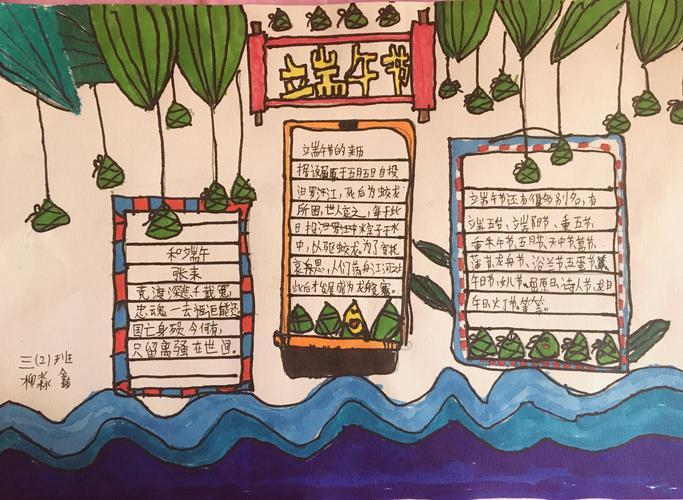 端午节
端午节的来历
据说屈原于五月五日自投
汨罗江,死后为蛟龙
所困,世人哀之,每于此
日投汨罗江中粽子于水
中,以驱蛟龙。为了寄托
哀思,人们荡舟江河之上
此后才发展成为龙舟竞赛。
和端午
张耒
竞渡深悲千载冤,
忠魂一去讵能还
国亡身殒今何有,
只留离骚在世间。
端午节还有很多别名,有
端五节、端阳节、重五节、
重午节、五月节、天中节、
菖蒲节、龙舟节、浴兰节、五蛋节、
午日节、女儿节、屈原日、诗人节、龙日
午日、灯节、等等。
三(2)班
柳淼鑫